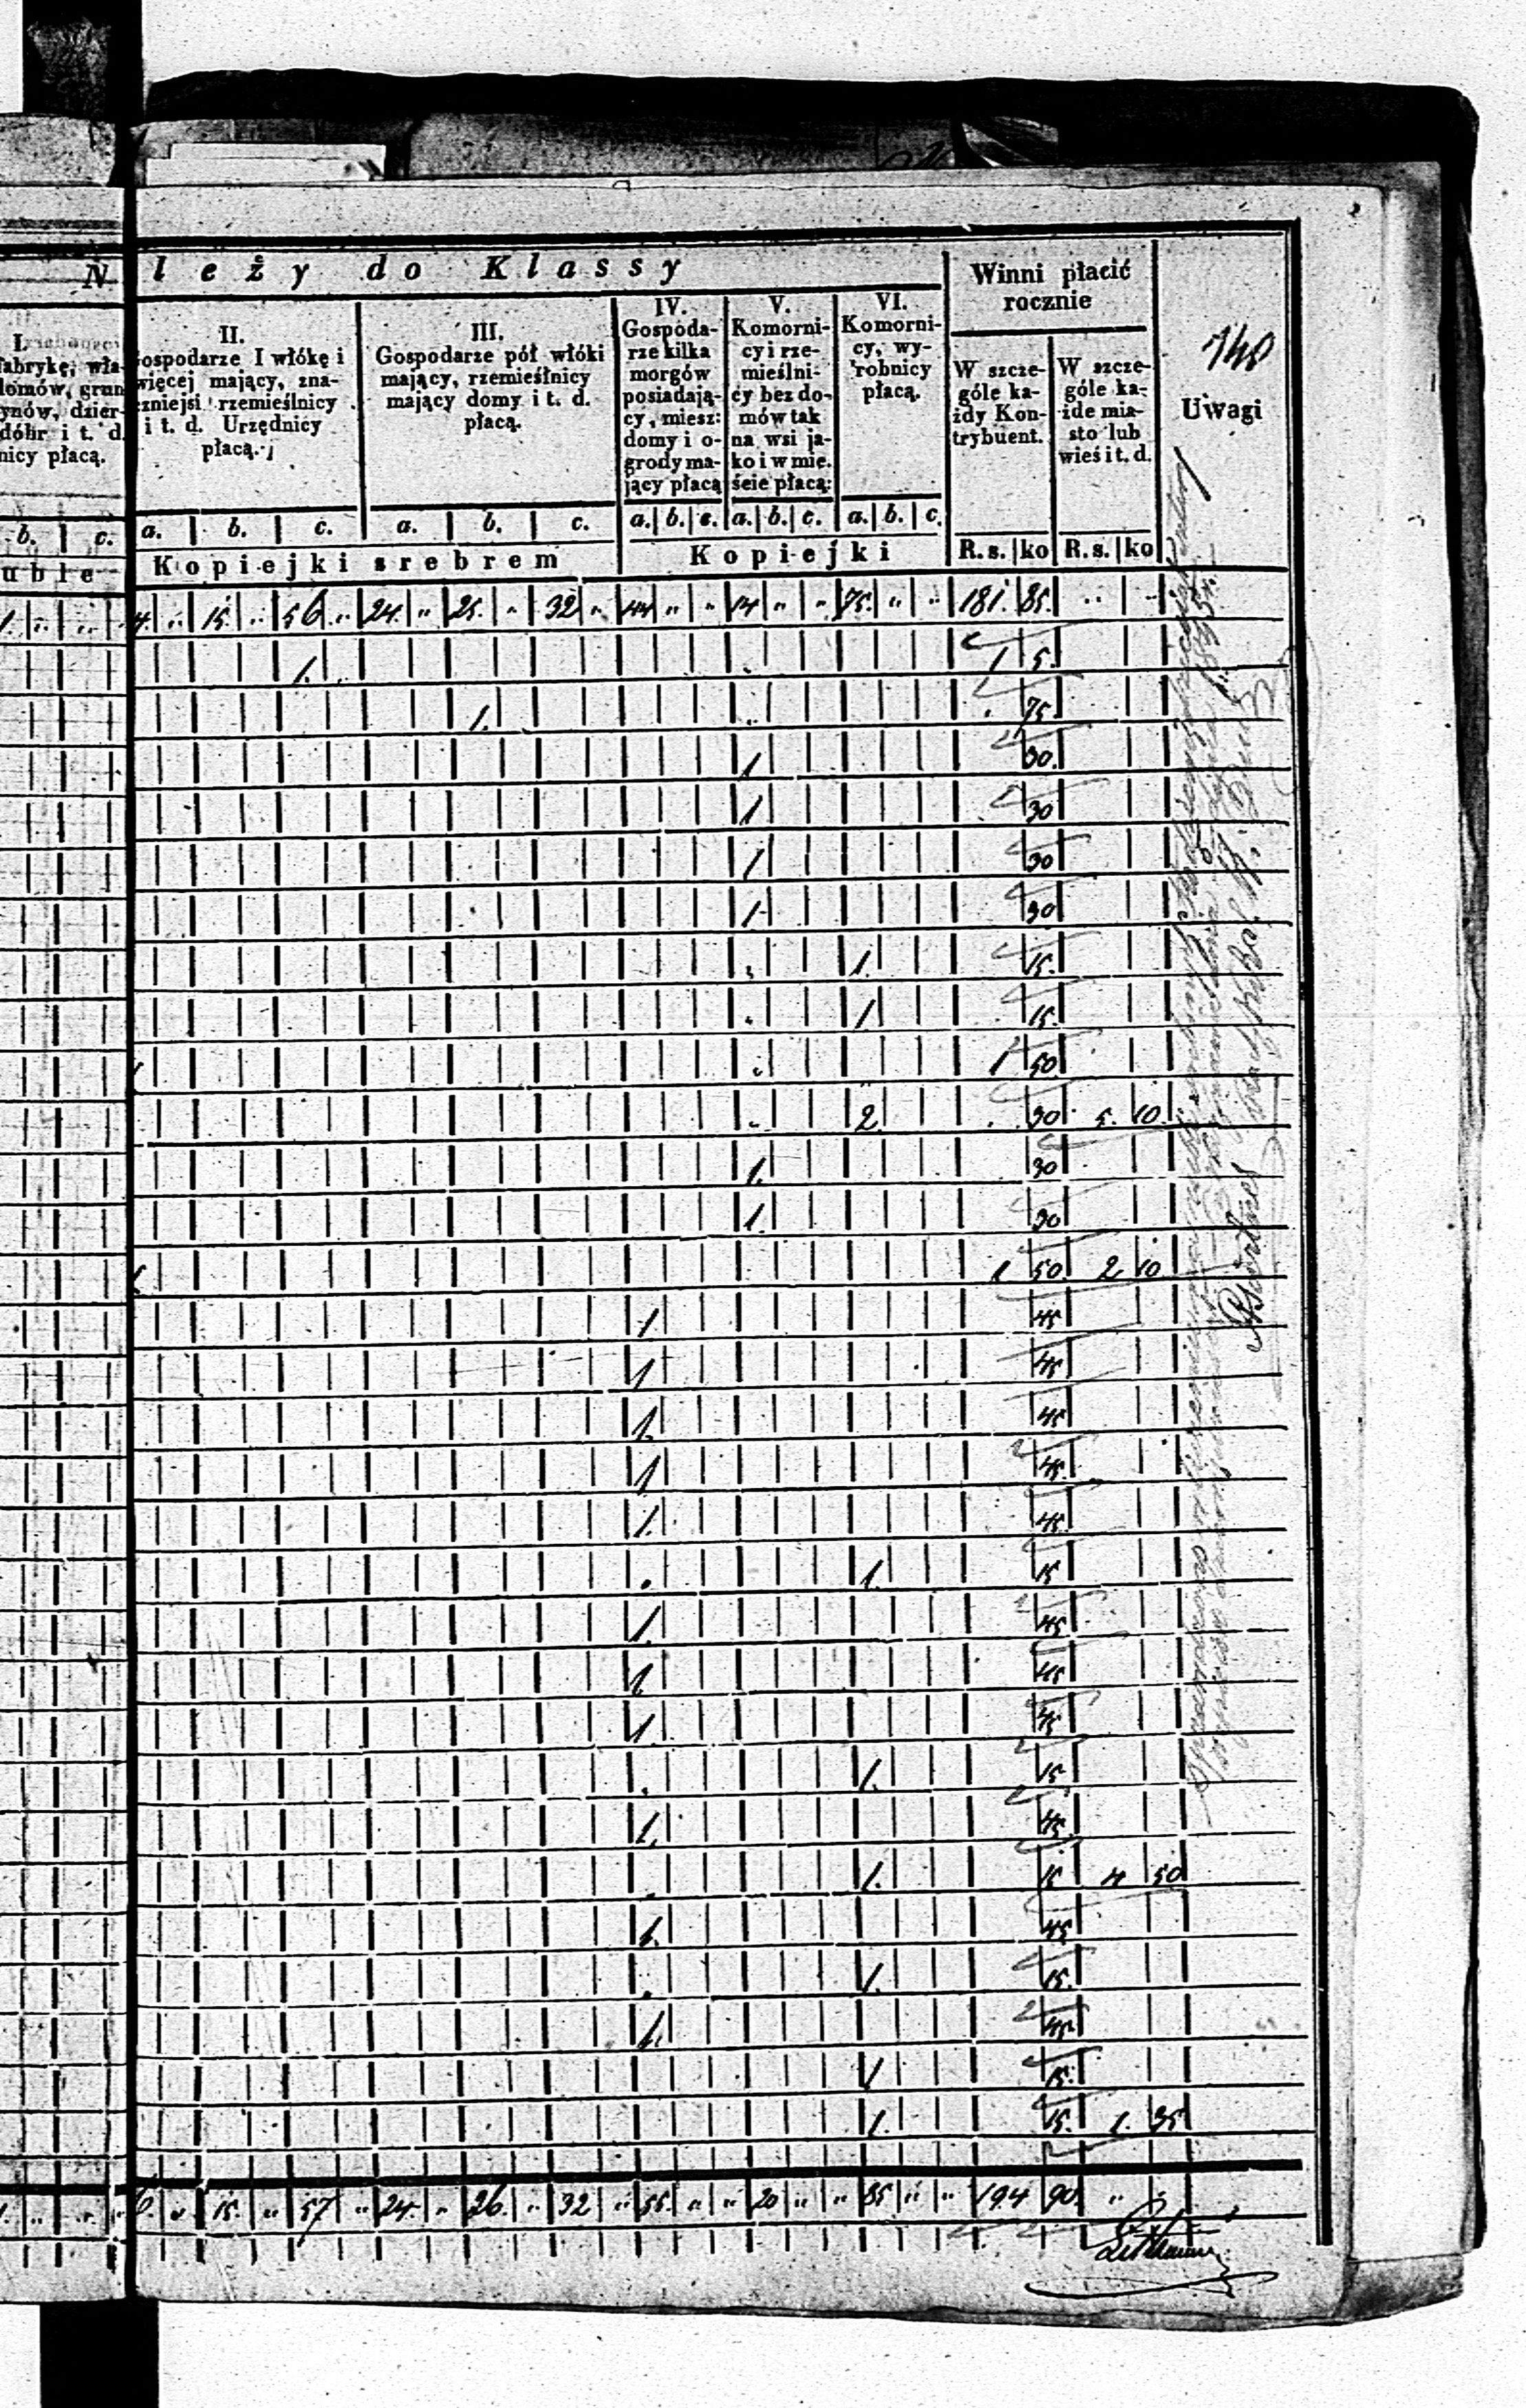 N l e ż y d o K l a s s y
Winni płacić
rocznie
140
Uwagi
I.
fabrykę, wła-
domów, grun
ynów, dzier-
dóbr i t. d.
nicy płacą.
II.
Gospodarze I włókę i
więcej mający, zna-
czniejsi rzemieślnicy
i t. d. Urzędnicy
płacą.
III.
Gospodarze pół włóki
mający, rzemieślnicy
mający domy i t. d.
płacą.
IV.
Gospoda-
rze kilka
morgów
posiadają-
cy, miesz:
domy i o-
grody ma-
jący płacą
V.
Komorni-
cy i rze-
mieślni-
cy bez do-
mów tak
na wsi ja-
ko i w mie-
ście płacą:
VI.
Komorni-
cy, wy-
robnicy
płacą.
W szcze-
góle ka-
żdy Kon-
trybuent.
W szcze-
góle ka-
żde mia-
sto lub
wieś i t. d.
b. c. a. b. c. a. b. c. a. b. c. a. b. c. a. b. c.
uble Kopiejki srebrem Kopiejki R.s. ko R.s. ko
1. „ „ 4. „ 15. „ 56 „ 24. „ 25. „ 32 „ 44 „ „ 14 „ „ 75. „ „ 181. 85. „ „
1. 1 5.
1. 75.
1 30.
1 30
1 30
1 30
1. 15.
1 15.
1 50
2 30 5. 10.
1. 30
1. 30
1 50 2 10
1 45
1 45
1. 45
1 45
1. 45
1. 15
1. 45
1 45
1. 45
1. 15
1. 45
1. 15 4 50
1. 45
1. 15.
1. 45
1 15.
1. 15. 1. 35
1. „ „ „ 6. „ 15. „ 57 „ 24. „ 26. „ 32 „ 55. „ „ 20 „ „ 85 „ „ 194 90 „